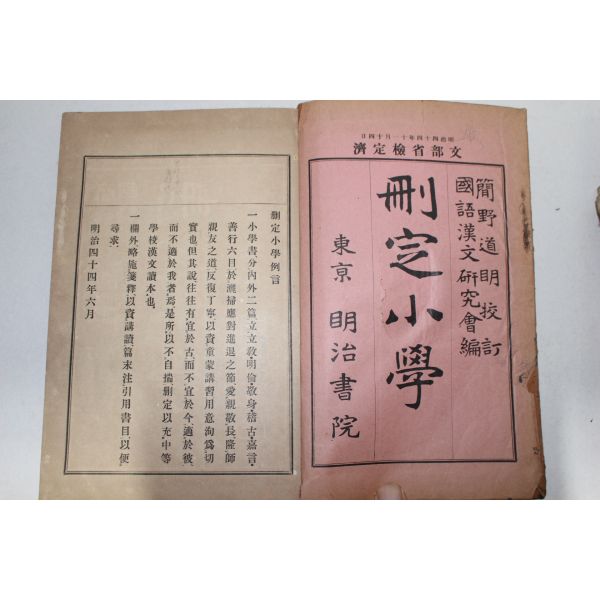 明治四十四年十一月十四日
文部省檢定濟
簡野道明校訂
國語漢文研究會編
刪定小學
東京 明治書院
刪定小學例言
一小學書分內外二篇立立教明倫敬身稽古嘉言
善行六目於灑掃應對進退之節愛親敬長隆師
親友之道反復丁寧以資童蒙講習用意洵爲切
實也但其說往往有宜於古而不宜於今適於彼
而不適於我者焉是所以不自揣刪定以充中等
學校漢文讀本也
一欄外略施箋釋以資講讀篇末注引用書目以便
尋求
明治四十四年六月